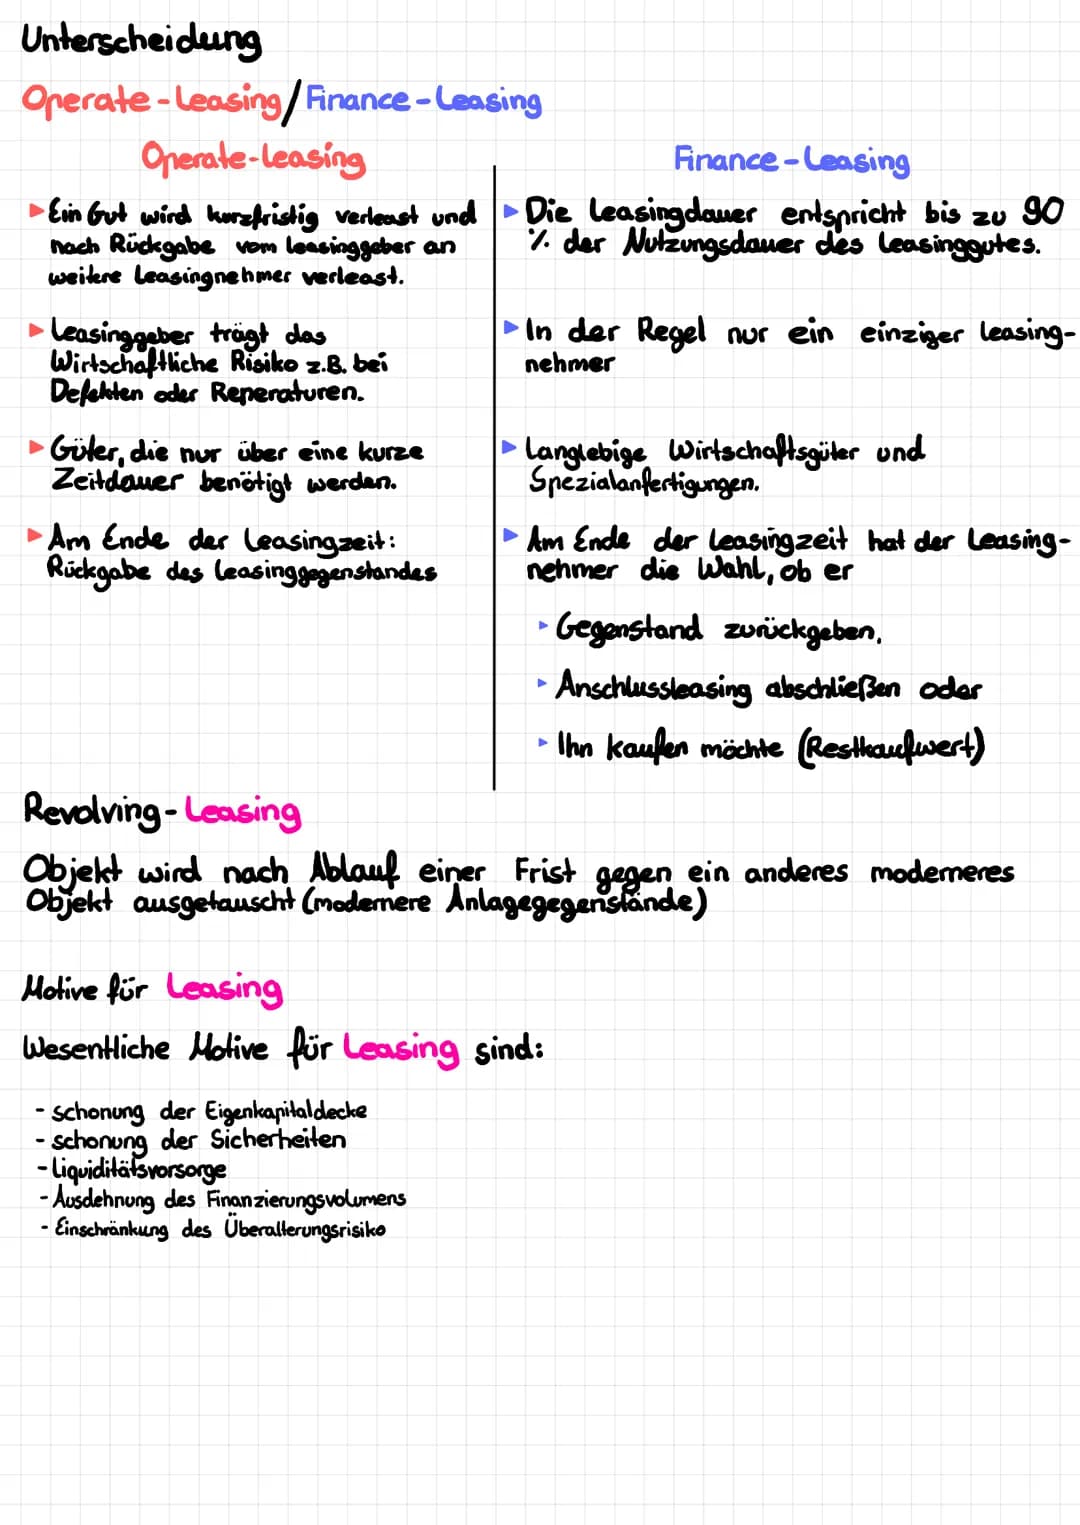 Unterscheidung
Operate-Leasing/Finance-Leasing
Operate-Leasing
▸ Ein Gut wird kurzfristig verleast und
nach Rückgabe vom Leasinggeber an
weitere Leasingnehmer verleast.
▸ Leasinggeber trägt das
Wirtschaftliche Risiko z.B. bei
Defekten oder Reperaturen.
▸ Güter, die nur über eine kurze
Zeitdauer benötigt werden.
▸ Am Ende der Leasingzeit:
Rückgabe des Leasinggegenstandes
Finance-Leasing
▸ Die Leasingdauer entspricht bis zu 90
% der Nutzungsdauer des Leasinggutes.
▸ In der Regel nur ein einziger Leasing-
nehmer
▸ Langlebige Wirtschaftsgüter und
Spezialanfertigungen.
▸ Am Ende der Leasingzeit hat der Leasing-
nehmer die Wahl, ob er
▸ Gegenstand zurückgeben,
▸ Anschlussleasing abschließen oder
▸ Ihn kaufen möchte (Restkaufwert)
Revolving-Leasing
Objekt wird nach Ablauf einer Frist gegen ein anderes moderneres
Objekt ausgetauscht (modernere Anlagegegenstände)
Motive für Leasing
Wesentliche Motive für Leasing sind:
- schonung der Eigenkapitaldecke
- schonung der Sicherheiten
- Liquiditätsvorsorge
- Ausdehnung des Finanzierungsvolumens
- Einschränkung des Überalterungsrisiko